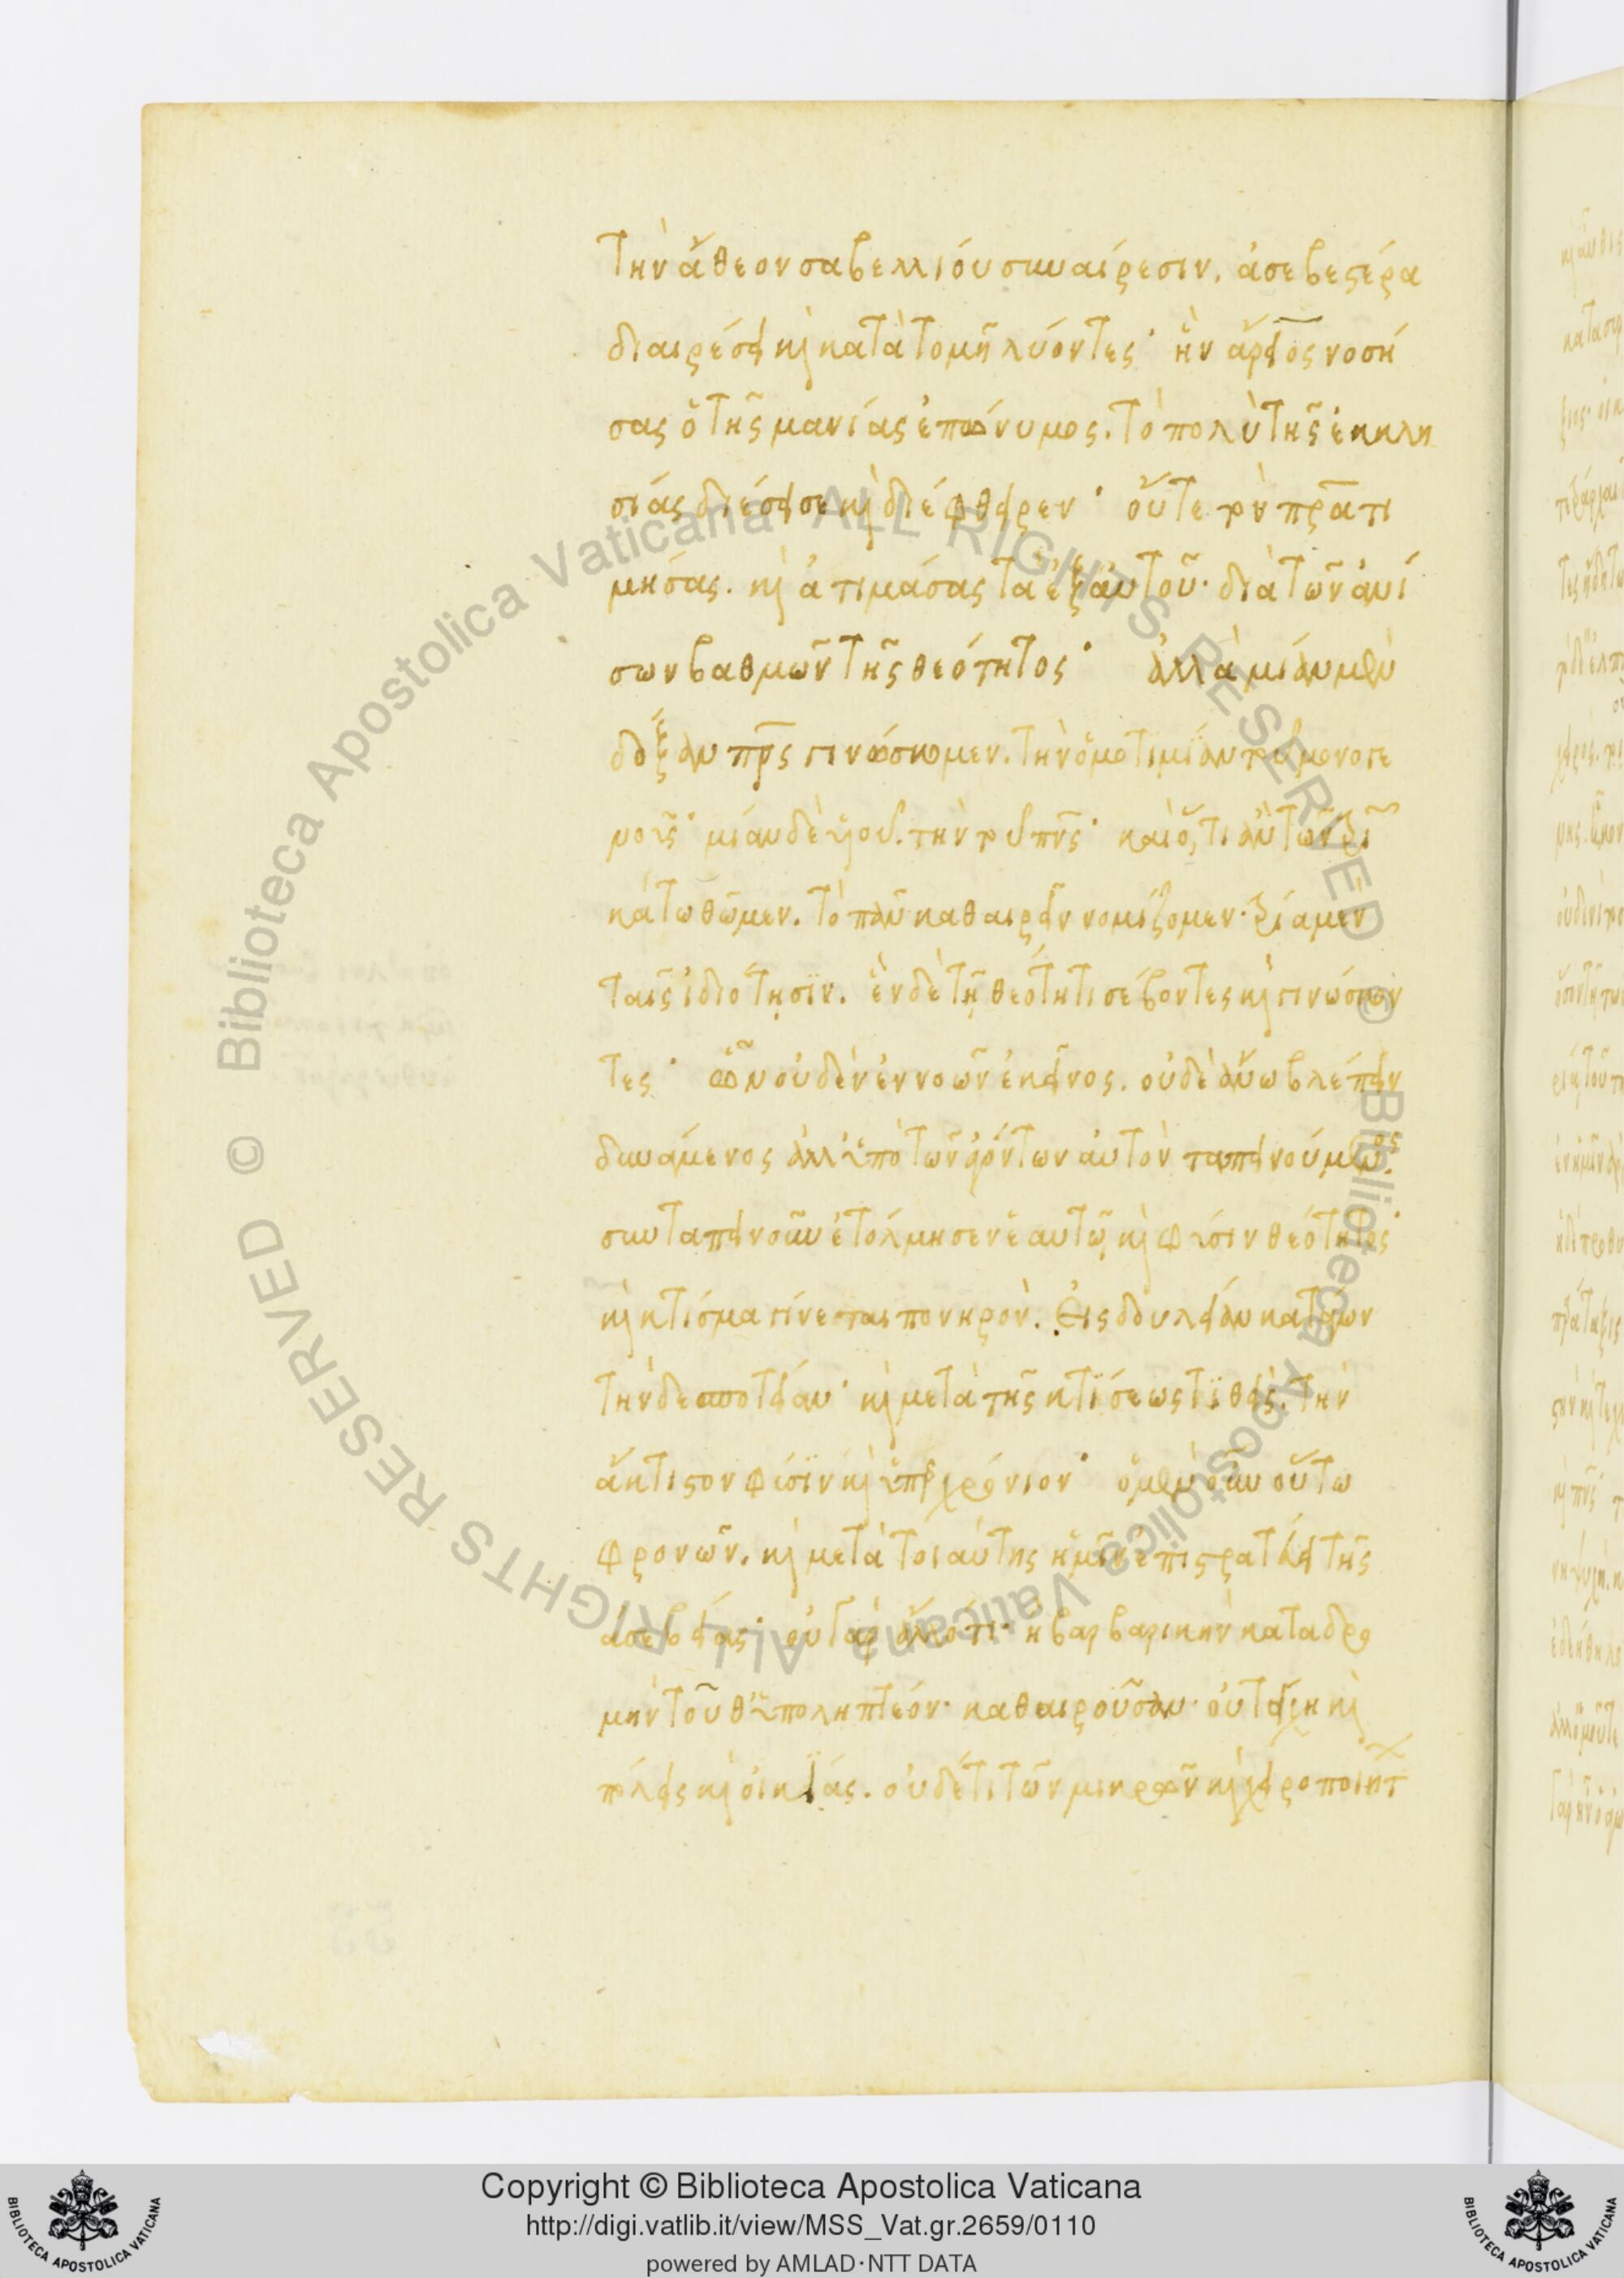 τὴν ἄθεον σαβελλίου συναίρεσιν. ἀσεβεστέρα
διαιρέσει κ̀ κατὰ τομῆ λύοντες· ἣν ἄρειος νοσή
σας ὁ τῆς μανίας ἐπώνυμος. τὸ πολὺ τῆς ἐκκλη
σίας διέσεισε κ̀ διέφθειρεν· οὔτε τὸν πρ̅α τι
μήσας. κ̀ ἀτιμάσας τὰ ἐξ αὐτοῦ· διὰ τῶν ἀνί
σων βαθμῶν τῆς θεότητος· ἀλλὰ μίαν μὲν
δόξαν πρ̅ς γινώσκομεν. τὴν ὁμοτιμίαν τοῦ μονογε
νοῦς· μίαν δὲ υἱοῦ. τὴν τοῦ πν̅ς· καὶ ὅ,τι ἂν τῶν τριῶν
κάτω θῶμεν. τὸ πᾶν καθαιρεῖν νομίζομεν· τρία μὲν
ταῖς ἰδιότησιν. ἓν δὲ τῆ θεότητι σέβοντες κ̀ γινώσκον
τες· ὧν οὐδὲν ἐννοῶν ἐκεῖνος. οὐδὲ ἄνω βλέπειν
δυνάμενος ἀλλ' ὑπὸ τῶν ἀγόντων αὐτὸν ταπεινούμενος.
συνταπεινοῦν ἐτόλμησεν ἑαυτῶ κ̀ φύσιν θεότητος·
κ̀ κτίσμα γίνεται πονηρὸν. εἰς δουλείαν κατάγων
τὴν δεσποτείαν· κ̀ μετὰ τῆς κτίσεως τιθεὶς. τὴν
ἄκτιστον φύσιν κ̀ ὑπὲρ χρόνιον· ὁ μὲν οὖν οὕτω
φρονῶν. κ̀ μετὰ τοιαύτης ἡμῖν ἐπιστρατεύει τῆς
ἀσεβείας· οὐ γὰρ ἄλλό τι· ἢ βαρβαρικὴν καταδρο
μὴν τοῦθ' ὑποληπτέον· καθαιροῦσαν· οὐ τείχη κ̀
πόλεις κ̀ οἰκίας. οὐδέ τι τῶν μικρῶν κ̀ χειροποιήτ